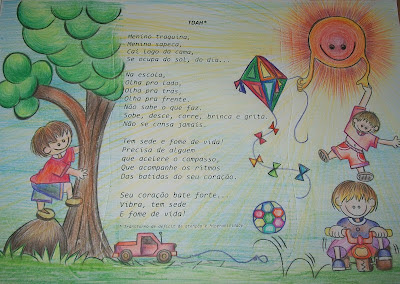 TDAH*
Menino traquina,
Menino sapeca,
Cai logo da cama,
Se ocupa do sol, do dia...
Na escola,
Olha pro lado,
Olha pra trás,
Olha pra frente.
Não sabe o que faz.
Sobe, desce, corre, brinca e grita.
Não se cansa jamais.
Tem sede e fome de vida!
Precisa de alguém
que acelere o compasso,
Que acompanhe os ritmos
Das batidas do seu coração.
Seu coração bate forte...
Vibra, tem sede
E fome de vida!
* Transtorno de Déficit de Atenção e Hiperatividade